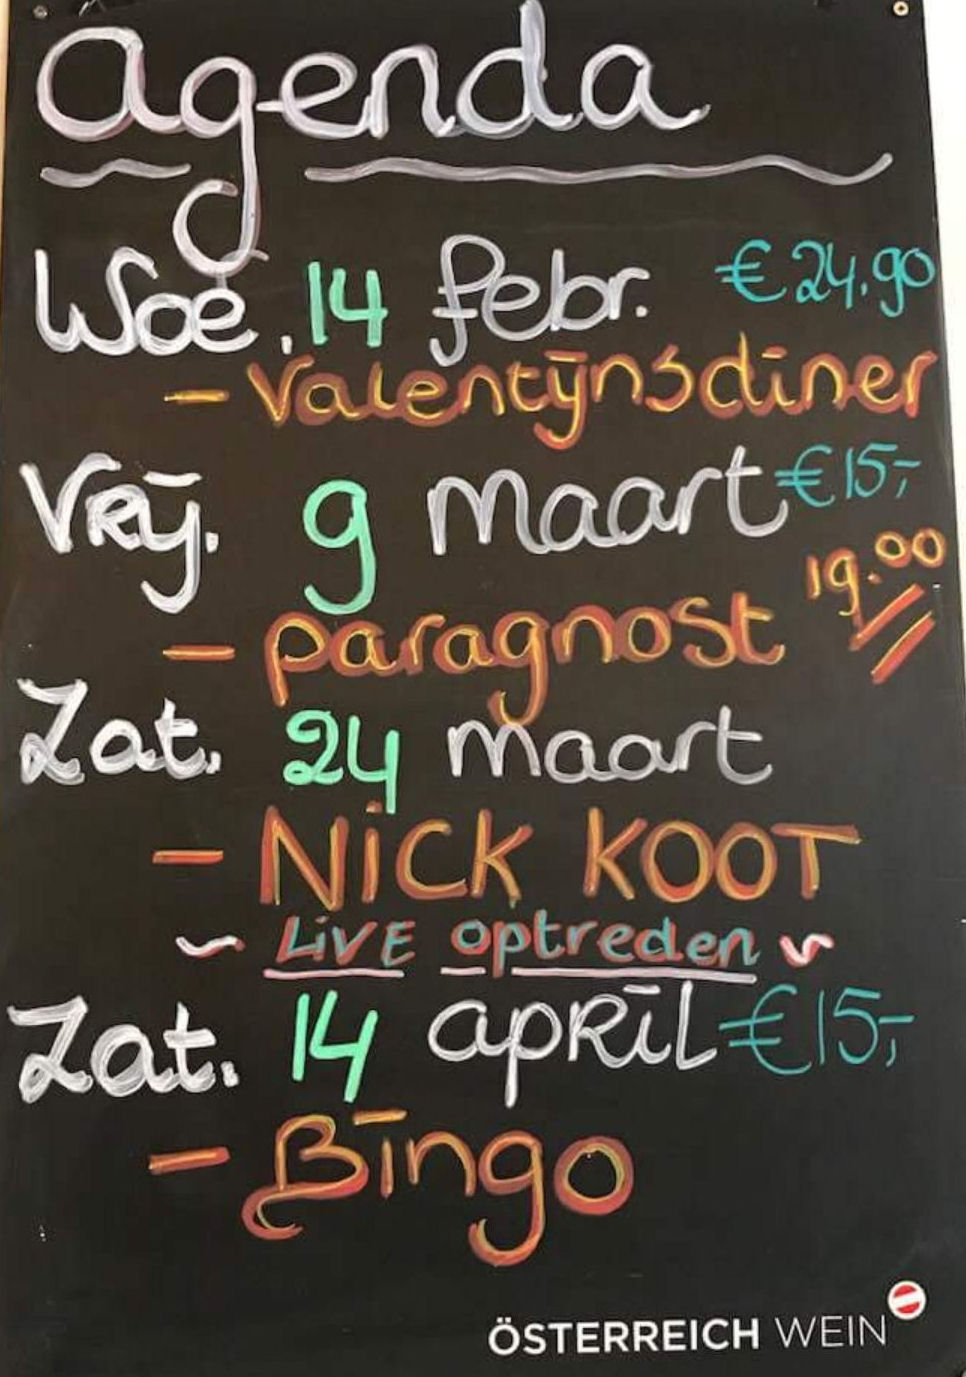 agenda
Woe. 14 febr. € 24.90
- Valentijnsdiner
Vrij. 9 maart € 15,-
19.00
- paragnost
Zat. 24 maart
- NiCK KOOT
~ LiVE optreden ~
Zat. 14 april € 15,-
- Bingo
ÖSTERREICH WEIN